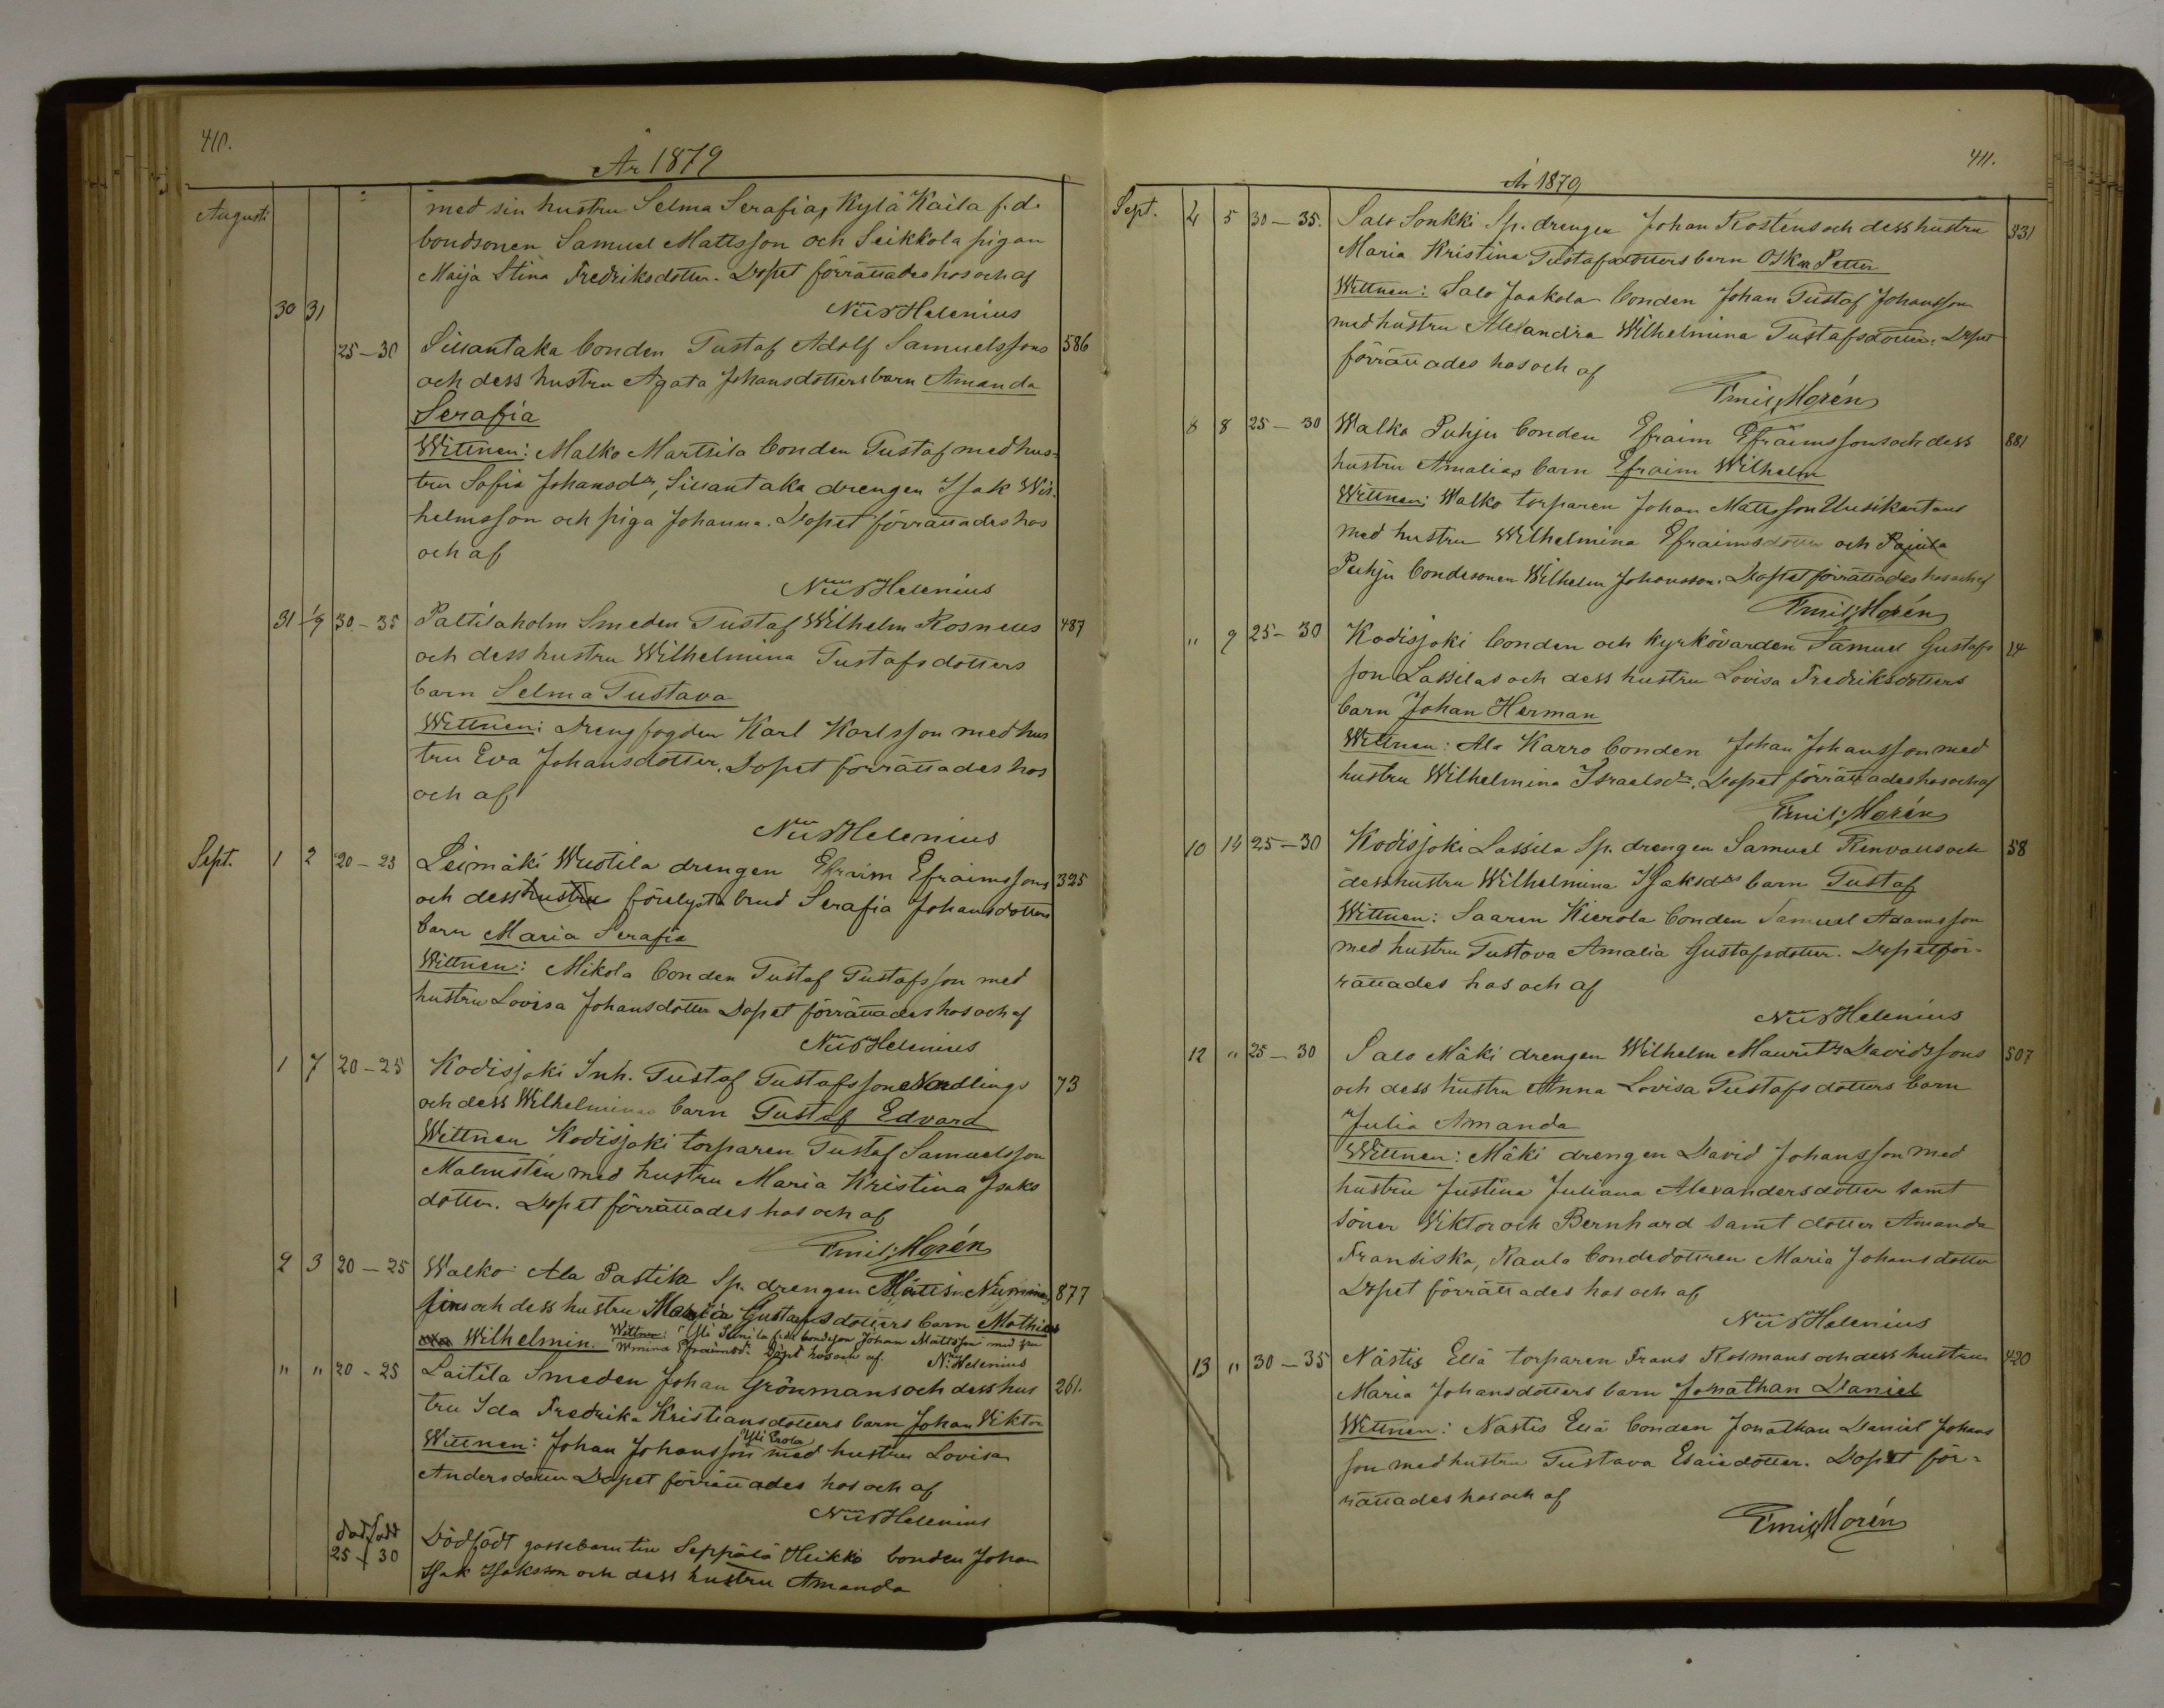 410.
År 1879
Augusti
med sin hustru Selma Serafia, Kylä Kaila f.d.
bondsonen Samuel Mattsson och Seikkola pigan
Maija Stina Fredriksdotter. Dopet förrättades hos och af
Nils Helenius
30 31
25-30 Sillantaka bonden Gustaf Adolf Samuelssons 586
och dess hustru Agata Johansdotters barn Amanda
Serafia
Wittnen: Malko Marttila bonden Gustaf med hus-
tru Sofia Johansdr, Sillantaka drengen Isak Wil-
helmsson och piga Johanna. Dopet förrättades hos
och af
Nils Helenius
31 1/9 30-35 Palttilaholm Smeden Gustaf Wilhelm Rosneus 487
och dess hustru Wilhelmina Gustafsdotters
barn Selma Gustava
Wittnen: Drengfogden Karl Karlsson med hus
tru Eva Johansdotter. Dopet förrättades hos
och af
Nils Helenius
Sept. 1 2 20-25 Leimäki Wuotila drengen Efraim Efraimssons 325
och dess hustru förelysta brud Serafia Johansdotters
barn Maria Serafia
Wittnen: Mikola bonden Gustaf Gustafsson med
hustru Lovisa Johansdotter Dopet förrättades hos och af
Nils Helenius
1 7 20-25 Kodisjoki Inh. Gustaf Gustafsson Nordlings 73
och dess Wilhelminas barn Gustaf Edvard
Wittnen Kodisjoki torparen Gustaf Samuelsson
Malmstén med hustru Maria Kristina Isaks
dotter. Dopet förrättades hos och af
Emil Morén
2 3 20-25 Walko Ala Pastila Sp. drengen Matts Nummi 877
och dess hustru Maria Gustafsdotters barn Mathilda
Wilhelmin. Wittnen: Yli f.d. bondeson Johan Mattsson med fru
Wmina Efraimsdr. Dopet hos och af. N. Helenius
" " 20-25 Laitila Smeden Johan Grönmans och dess hus 261.
tru Ida Fredrika Kristiansdotters barn Johan Viktor
Yli Erola
Wittnen: Johan Johansson med hustru Lovisa
Andersdotter Dopet förrättades hos och af
Nils Helenius
dödfödt
25-30 Dödfödt gossebarn till Seppälä Heikko bonden Johan
Isak Isaksson och dess hustru Amanda
411.
År 1879
Sept. 4 5 30-35. Salo Sonkki Sp. drengen Johan Rosténs och dess hustru 331
Maria Kristina Gustafsdotters barn Oskar Petter
Wittnen: Salo Jaakola bonden Johan Gustaf Johansson
med hustru Alexandra Wilhelmina Gustafsdotter. Dopet
förrättades hos och af
Emil Morén
8 8 25-30 Walko Puhju bonden Efraim Efraimssons och dess 881
hustru Amalias barn Efraim Wilhelm
Wittnen: Walko torparen Johan Mattsson Uusikartano
med hustru Wilhelmina Efraimsdotter och Pajula
Puhju bondesonen Wilhelm Johansson. Dopet förrättades hos och af
Emil Morén
" 9 25-30 Kodisjoki bonden och kyrkovärden Samuel Gustafs 24
son Lassilas och dess hustru Lovisa Fredriksdotters
barn Johan Herman
Wittnen: Ala Karro bonden Johan Johansson med
hustru Wilhelmina Israelsdr. Dopet förrättades hos och af
Emil Morén
10 14 25-30 Kodisjoki Lassila Sp. drengen Samuel Renvalls och 58
dess hustru Wilhelmina Isaksdrs barn Gustaf
Wittnen: Saaren Kierola bonden Samuel Adamsson
med hustru Gustava Amalia Gustafsdotter. Dopet för-
rättades hos och af
Nils Helenius
12 " 25-30 Salo Mäki drengen Wilhelm Maurits Davidssons 507
och dess hustru Anna Lovisa Gustafsdotters barn
Julia Amanda
Wittnen: Mäki drengen David Johansson med
hustru Justina Juliana Alexandersdotter samt
söner Wiktor och Bernhard samt dotter Amanda
Fransiska, Raula bondedottren Maria Johansdotter
Dopet förrättades hos och af
Nils Helenius
13 " 30-35 Nästis Eliä torparen Frans Rosmans och dess hustru 420
Maria Johansdotters barn Jonathan Daniel
Wittnen: Nästis Eliä bonden Jonathan Daniel Johans
son med hustru Gustava Esaiedotter. Dopet för-
rättades hos och af
Emil Morén